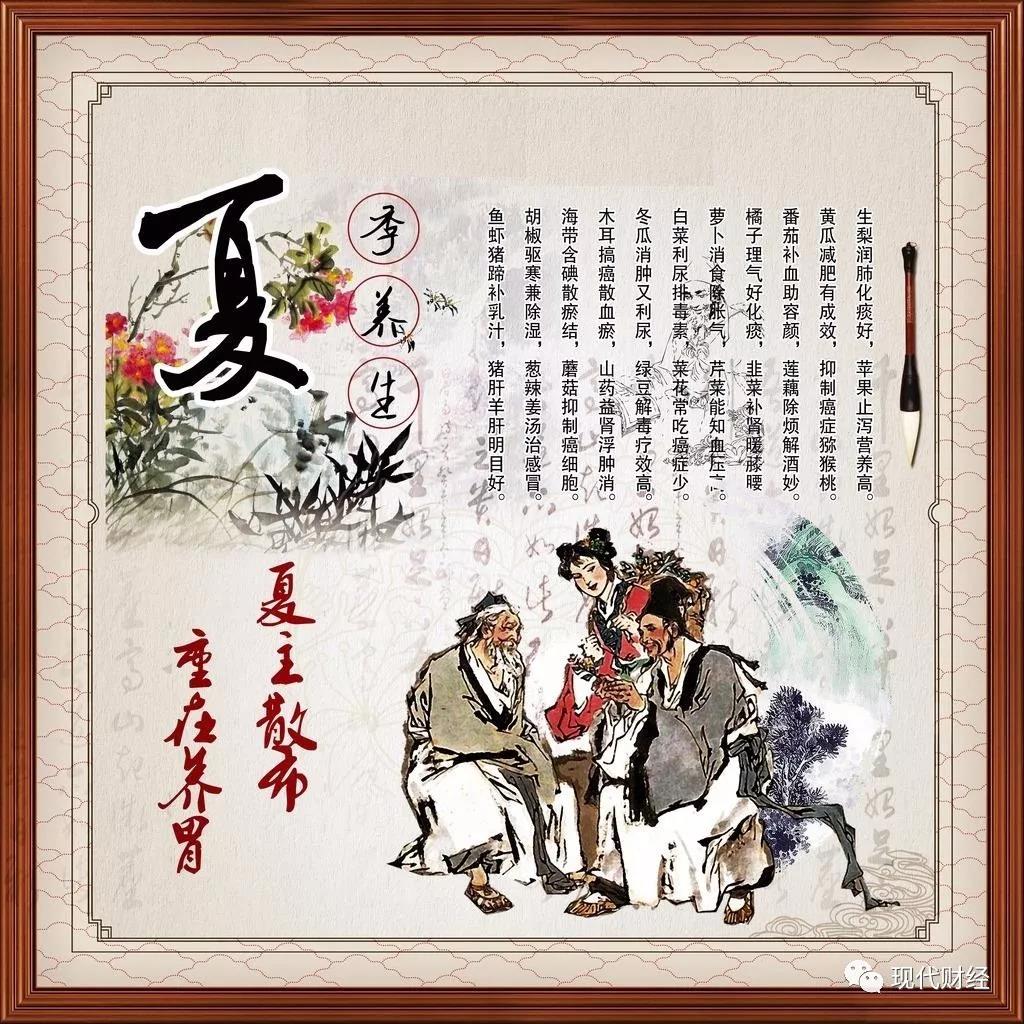 夏
季养生
生梨润肺化痰好，苹果止泻营养高。
黄瓜减肥有成效，抑制癌症猕猴桃。
番茄补血助容颜，莲藕除烦解酒妙。
橘子理气好化痰，韭菜补肾暖膝腰
萝卜消食除胀气，芹菜能知血压。
白菜利尿排毒素，菜花常吃癌症少。
冬瓜消肿又利尿，绿豆解毒疗效高。
木耳搞癌散血瘀，山药益肾浮肿消。
海带含碘散瘀结，蘑菇抑制癌细胞。
胡椒驱寒兼除湿，葱辣姜汤治感冒。
鱼虾猪蹄补乳汁，猪肝羊肝明目好。
夏主散布
重在养胃
现代财经